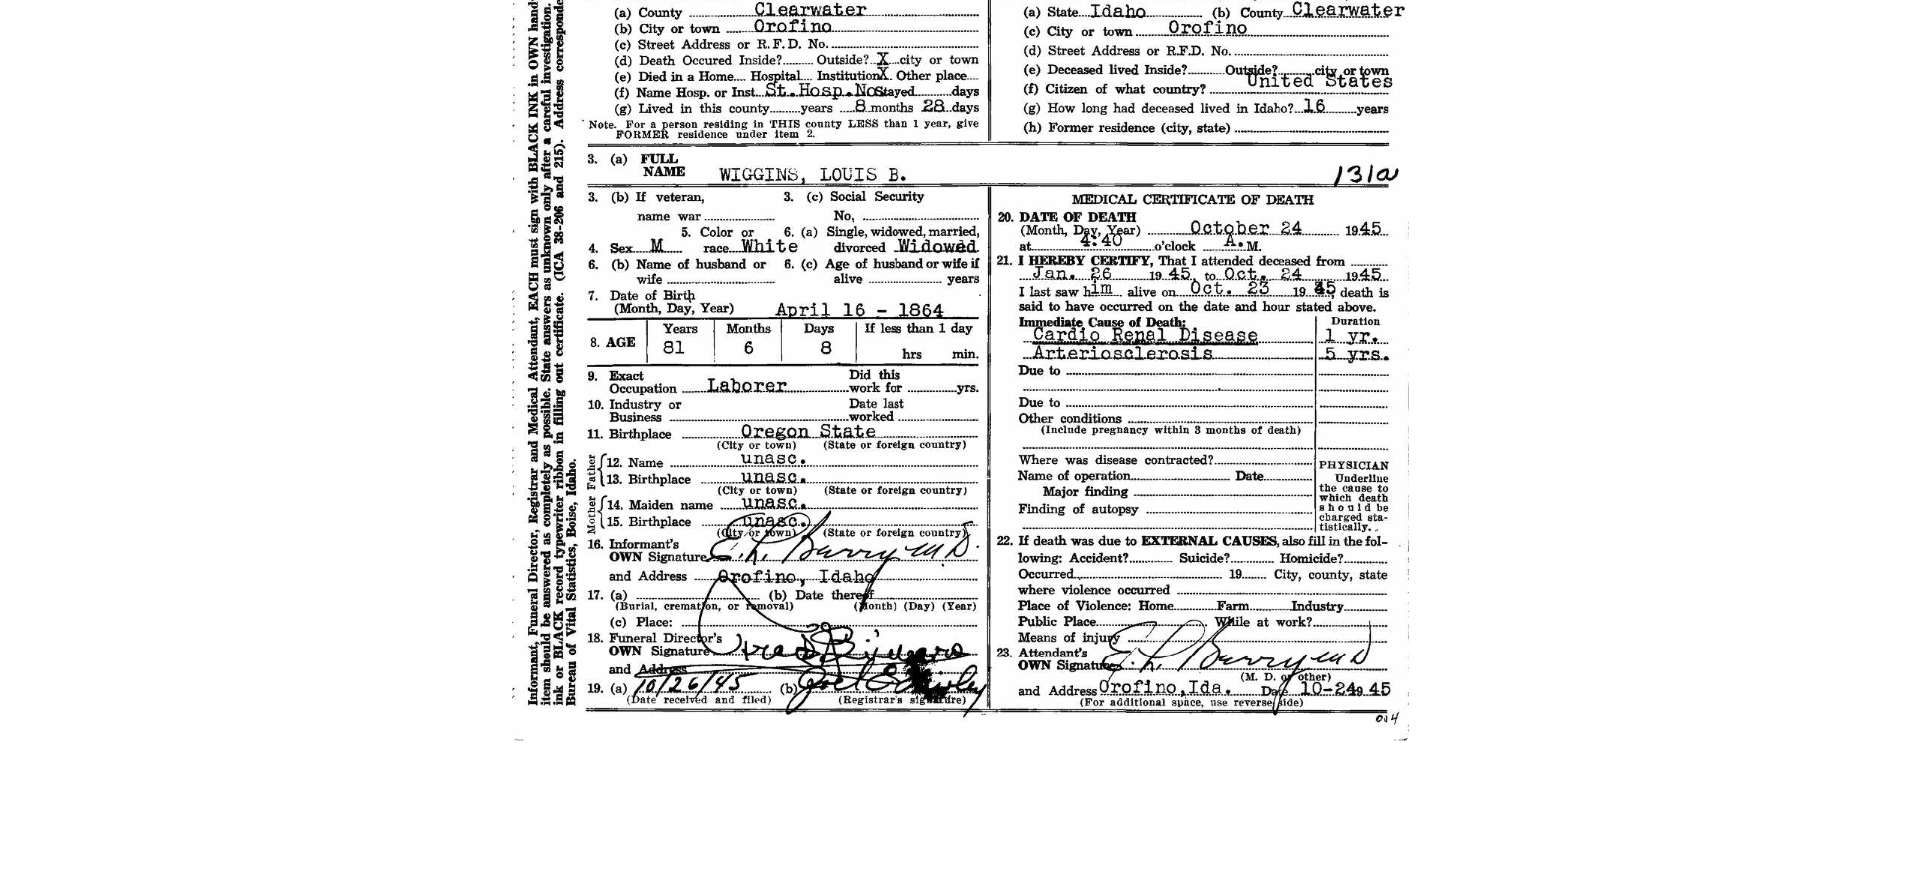 Informant, Funeral Director, Registrar and Medical Attendant, EACH must sign with BLACK INK in OWN hand-
item should be answered as completely as possible. State answers as unknown only after a careful investigation.
ink or BLACK record typewriter ribbon in filling out certificate. (ICA 38-206 and 215). Address corresponde
Bureau of Vital Statistics, Boise, Idaho.
(a) County Clearwater
(b) City or town Orofino
(c) Street Address or R.F.D. No.
(d) Death Occured Inside? Outside? X city or town
(e) Died in a Home Hospital Institution X Other place
(f) Name Hosp. or Inst. St. Hosp. No Stayed days
(g) Lived in this county years 8 months 28 days
Note. For a person residing in THIS county LESS than 1 year, give
FORMER residence under item 2.
(a) State Idaho (b) County Clearwater
(c) City or town Orofino
(d) Street Address or R.F.D. No.
(e) Deceased lived Inside? Outside? city or town
(f) Citizen of what country? United States
(g) How long had deceased lived in Idaho? 16 years
(h) Former residence (city, state)
3. (a) FULL
NAME WIGGINS, LOUIS B.
131a
3. (b) If veteran, 3. (c) Social Security
name war No,
5. Color or 6. (a) Single, widowed, married,
4. Sex M race White divorced Widowed
6. (b) Name of husband or 6. (c) Age of husband or wife if
wife alive years
7. Date of Birth
(Month, Day, Year) April 16 - 1864
Years Months Days If less than 1 day
8. AGE 81 6 8 hrs min.
9. Exact Did this
Occupation Laborer work for yrs.
10. Industry or Date last
Business worked
11. Birthplace Oregon State
(City or town) (State or foreign country)
Father
12. Name unasc.
13. Birthplace unasc.
(City or town) (State or foreign country)
Mother
14. Maiden name unasc.
15. Birthplace unasc.
(City or town) (State or foreign country)
16. Informant's
OWN Signature E. L. Berry M D
and Address Orofino, Idaho
17. (a) (b) Date thereof
(Burial, cremation, or removal) (Month) (Day) (Year)
(c) Place:
18. Funeral Director's
OWN Signature
and Address
19. (a) 10/26/45 (b)
(Date received and filed) (Registrar's signature)
MEDICAL CERTIFICATE OF DEATH
20. DATE OF DEATH
(Month, Day, Year) October 24 1945
at 4:40 o'clock A. M.
21. I HEREBY CERTIFY, That I attended deceased from
Jan. 26 1945, to Oct. 24 1945
I last saw him alive on Oct. 23 1945, death is
said to have occurred on the date and hour stated above.
Immediate Cause of Death: Duration
Cardio Renal Disease 1 yr.
Arteriosclerosis 5 yrs.
Due to
Due to
Other conditions
(Include pregnancy within 3 months of death)
Where was disease contracted?
Name of operation Date
Major finding
Finding of autopsy
PHYSICIAN
Underline
the cause to
which death
should be
charged sta-
tistically.
22. If death was due to EXTERNAL CAUSES, also fill in the fol-
lowing: Accident? Suicide? Homicide?
Occurred 19 City, county, state
where violence occurred
Place of Violence: Home Farm Industry
Public Place While at work?
Means of injury
23. Attendant's
OWN Signature E. L. Berry M D
(M. D. or other)
and Address Orofino, Ida. Date 10-24 1945
(For additional space, use reverse side)